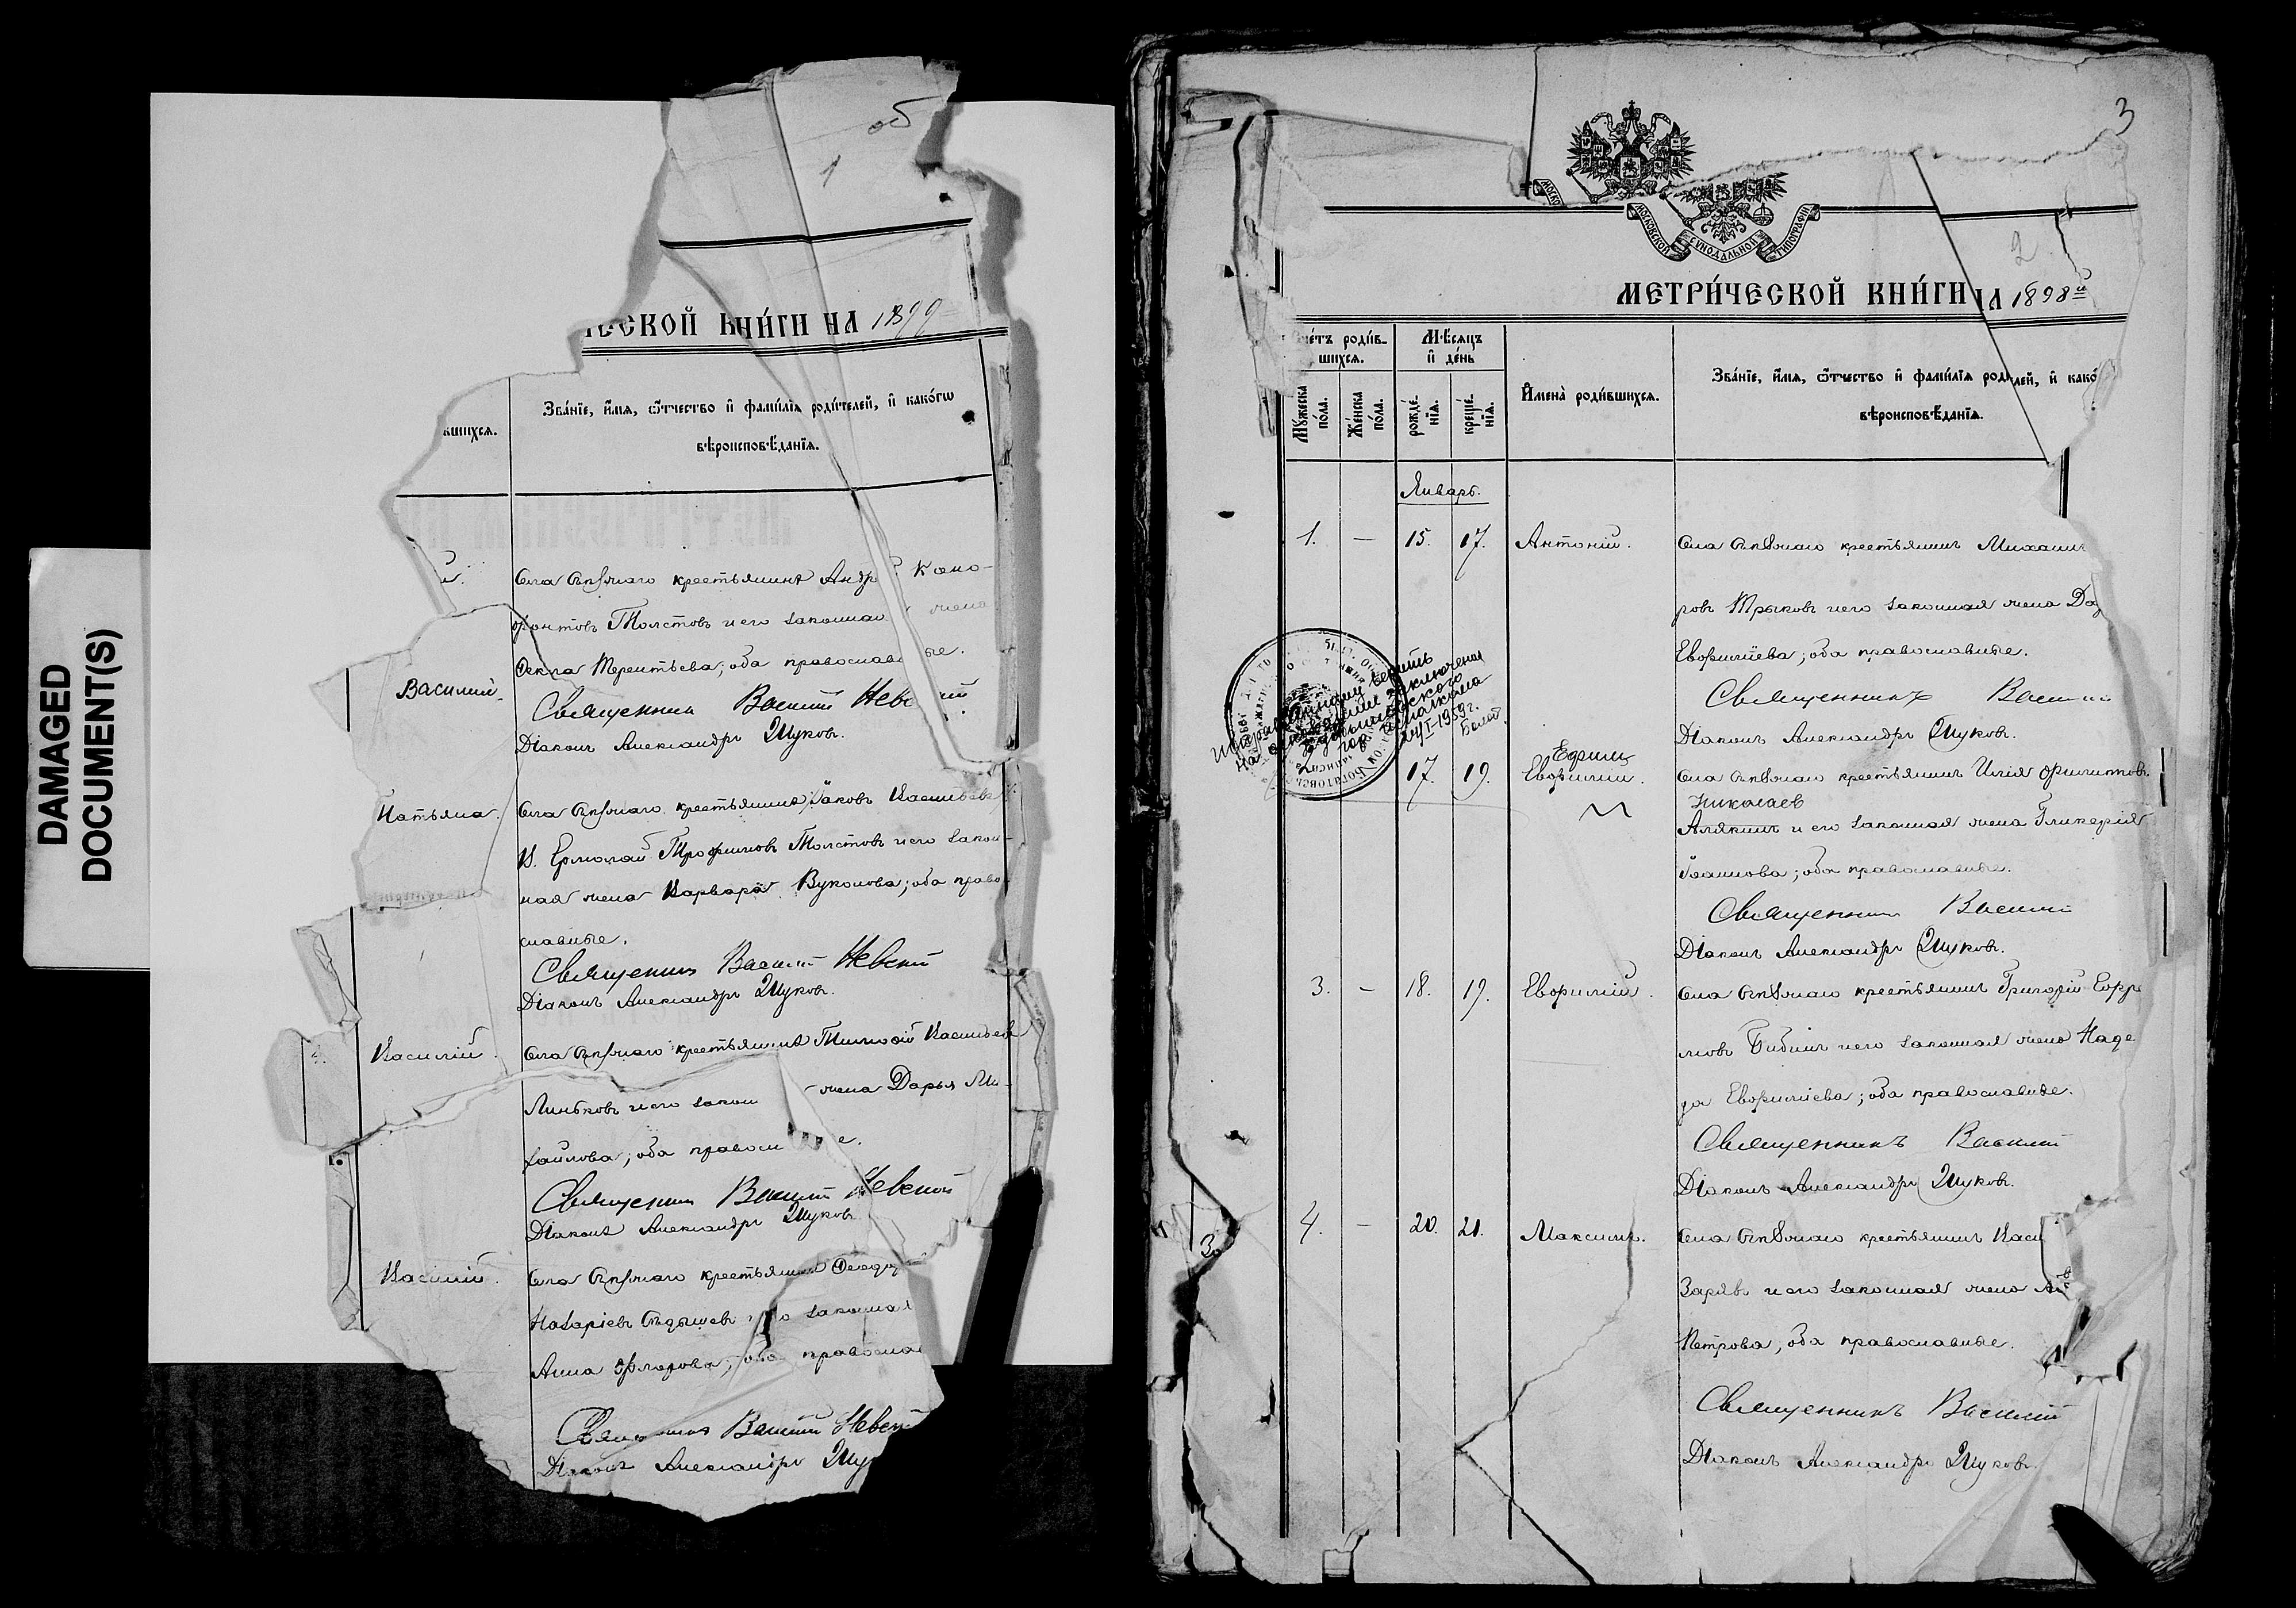 DAMAGED
DOCUMENT(S)
об
1
ЧЕСКОЙ КНИ́ГИ НА 1899
вшихся.
Зва́нїе, и҆́мя, ѻ҆́тчество и҆ фами́лїя роди́телей, и҆ како́гѡ
вѣроисповѣ́данїя.
Села крестьянинъ Андр Ксено-
фонтовъ Толстовъ и его законная жена
Ѳекла Терентьева; оба православные.
Василій
Священникъ Василій Невскій
Діаконъ Александръ Жуковъ.
Татьяна.
Села крестьянинъ Іаковъ Васильевъ
Ермолай Трофимовъ Толстовъ и его закон-
ная жена Варвара Вуколова; оба право-
славные.
Священникъ Василій Невскій
Діаконъ Александръ Жуковъ.
Василій.
Села крестьянинъ Тимофей Васильевъ
Линьковъ и его закон жена Дарья Ми-
хайлова; оба правосл е.
Священникъ Василій Невскій
Діаконъ Александръ Жуковъ
Василій.
Села крестьянинъ Ѳеод
Назаріевъ Сѣдышевъ законная
Анна Фролова; оба правосла
Священникъ Василій Невскій
Діаконъ Александръ Жу
3
2
МОСКО
МОСКОВСКОЙ СѴНОДАЛЬНОЙ ТИПОГРАФІИ
МЕТРИ́ЧЕСКОЙ КНИ́ГИ НА 1898й
Сче́тъ роди́в-
шихся.
Мѣ́сяцъ
и҆ де́нь
Му́жеска
по́ла.
Же́нска
по́ла.
рожде́-
нїя.
креще́-
нїя.
И҆мена̀ роди́вшихся.
Зва́нїе, и҆́мя, ѻ҆́тчество и҆ фами́лїя роди́телей, и҆ како́
вѣроисповѣ́данїя.
Январь.
1. — 15. 17. Антоній. Села крестьянинъ Михаил
ровъ и его законная жена Да
Евфиміева; оба православные.
Священникъ Василій
Діаконъ Александръ Жуковъ.
Исправленному верить
на основании заключения
24/I-1959г.
Ефрим
17. 19. Евфимій. Села крестьянинъ Илія Филиповъ
Николаев
Алякинъ и его законная жена Гликерія
Іоаннова; оба православные.
Священникъ Василій
Діаконъ Александръ Жуковъ.
3. — 18. 19. Евфимій. Села крестьянинъ Григорій Ефр
мовъ Бибинъ и его законная жена Наде
да Евфиміева; оба православные.
Священникъ Василій
Діаконъ Александръ Жуковъ.
4. — 20. 21. Максимъ. Села крестьянинъ Васи
Заряевъ и его законная жена
Петрова, оба православные.
Священникъ Василій
Діаконъ Александръ Жуковъ.
3